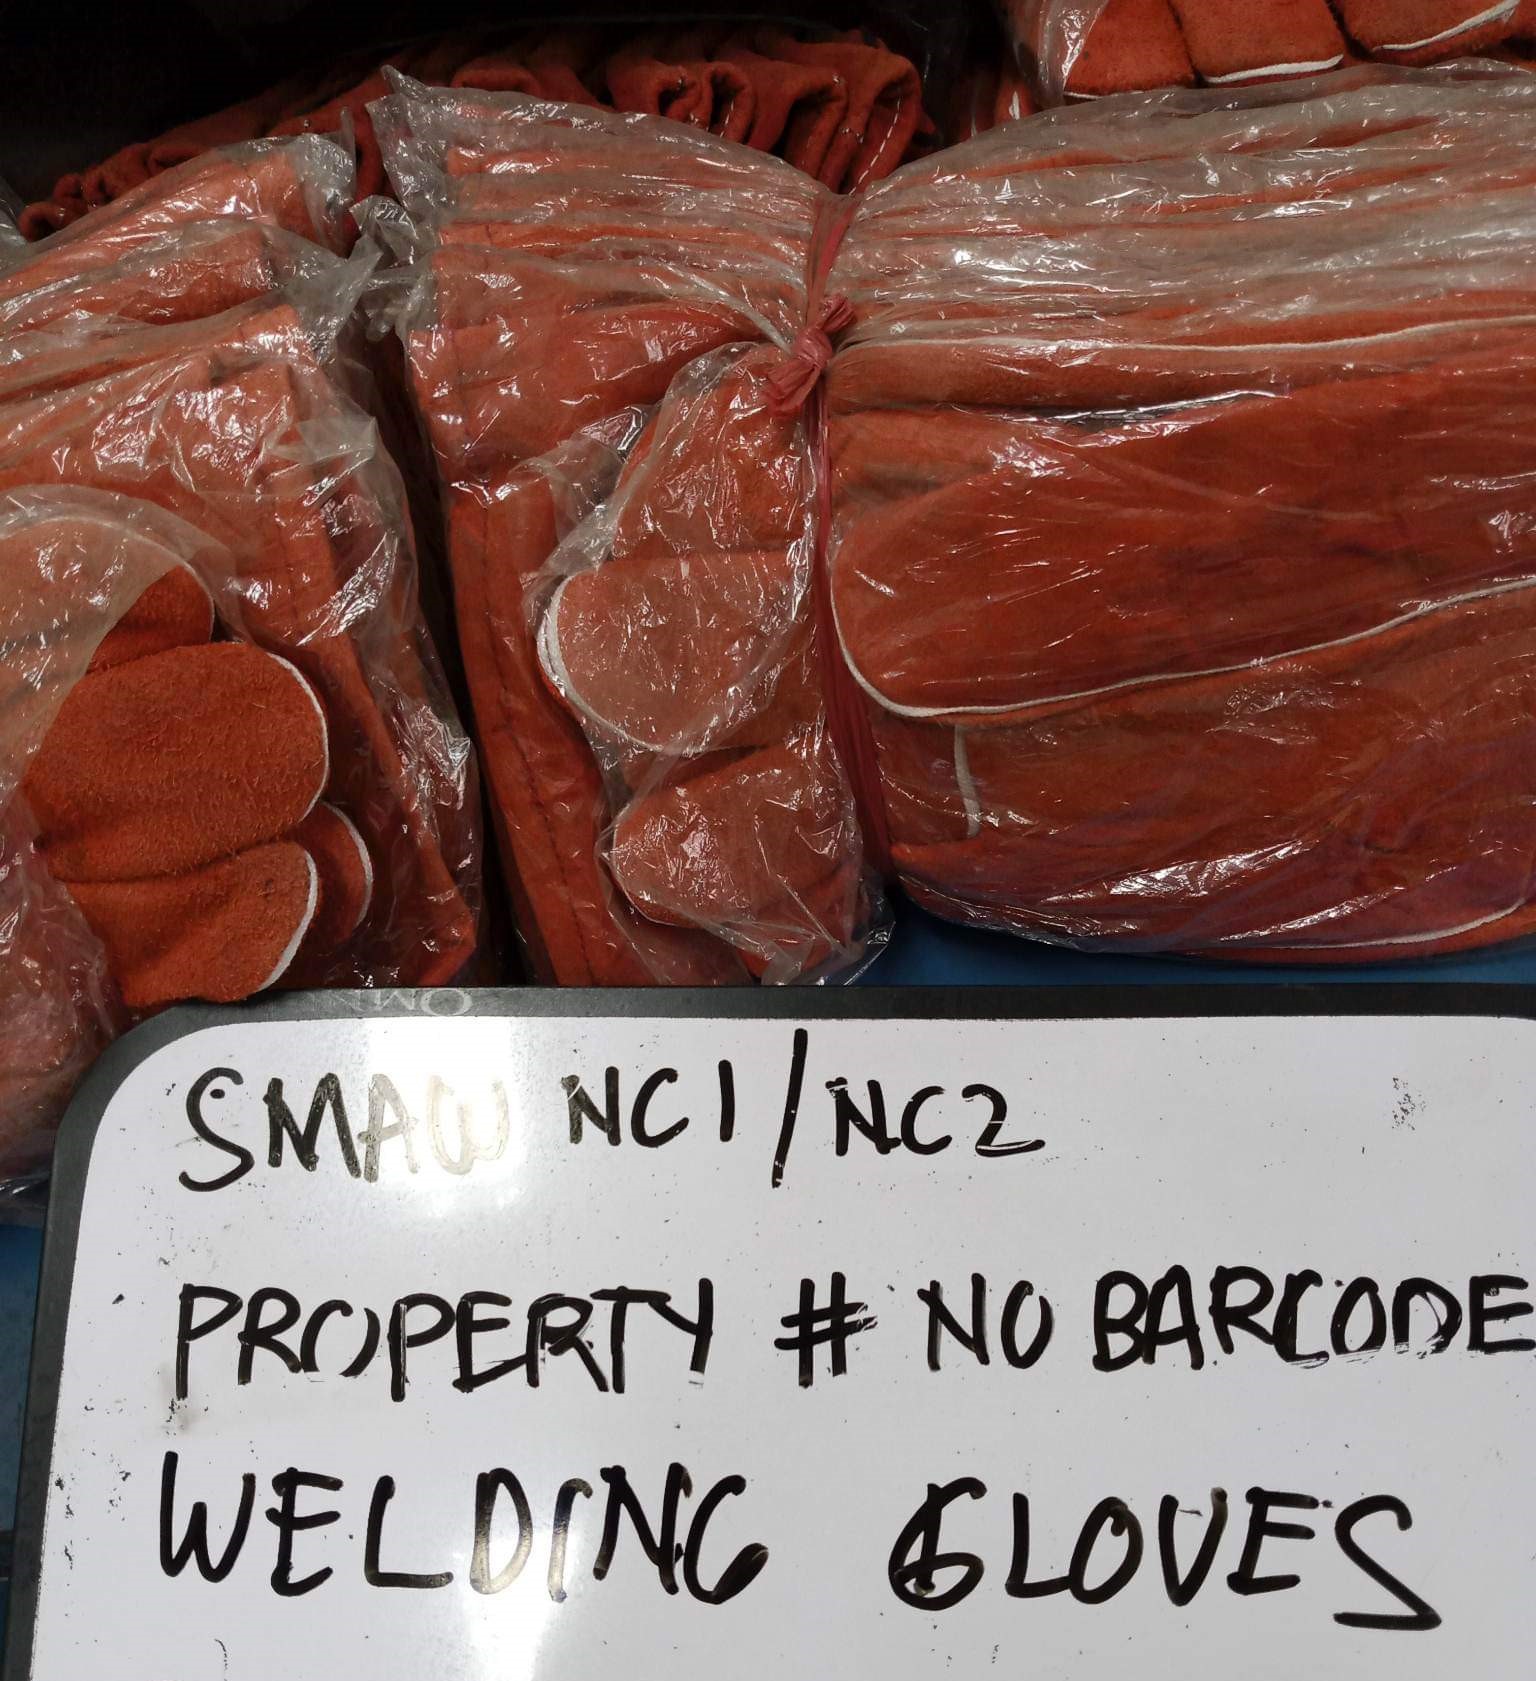 SMAW NC1/NC2
PROPERTY # NO BARCODE
WELDING GLOVES